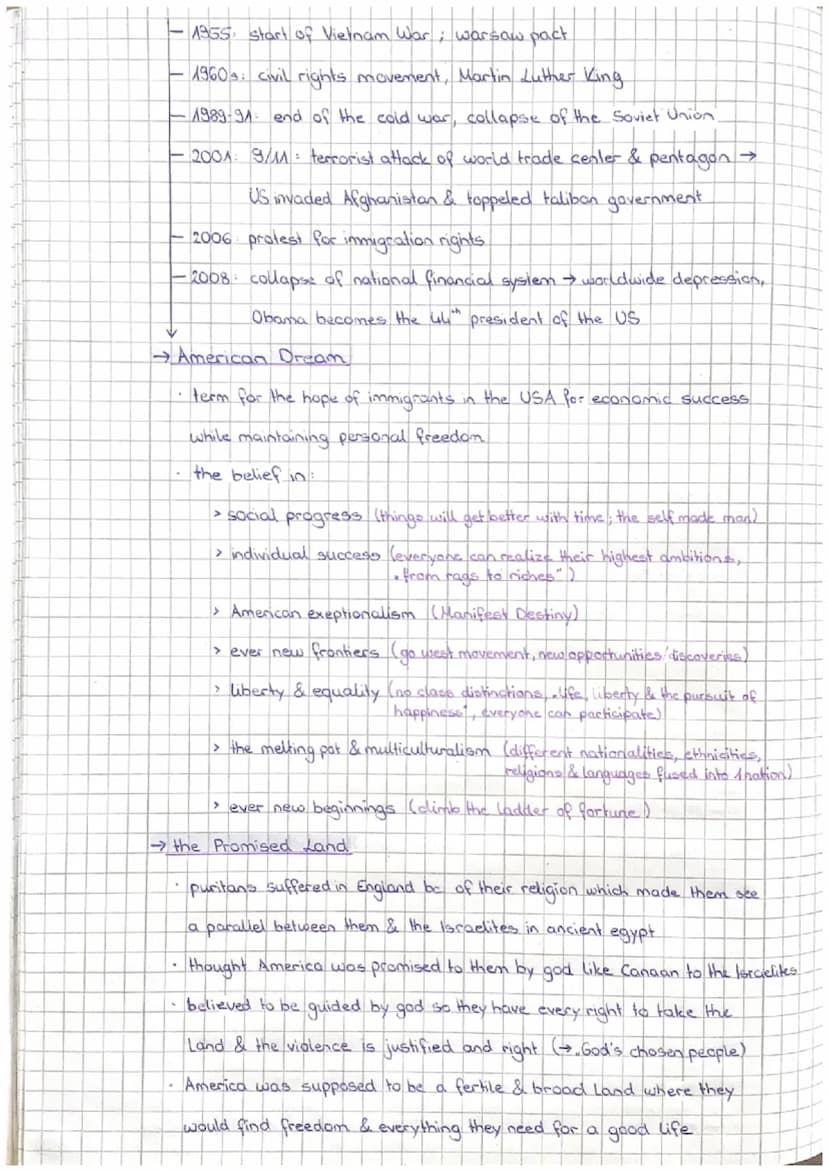 – 1955: start of Vietnam War ; warsaw pact
– 1960s: civil rights movement, Martin Luther King
– 1989-91: end of the cold war, collapse of the Soviet Union
– 2001: 9/11: terrorist attack of world trade center & pentagon →
US invaded Afghanistan & toppeled taliban government
– 2006: protest for immigration rights
– 2008: collapse of national financial system → worldwide depression,
Obama becomes the 44th president of the US
→ American Dream
· term for the hope of immigrants in the USA for economic success
while maintaining personal freedom
· the belief in:
> social progress (things will get better with time; the self made man)
> individual success (everyone can realize their highest ambitions,
„from rags to riches")
> American exeptionalism (Manifest Destiny)
> ever new frontiers (go west movement, new opportunities/discoveries)
> liberty & equality (no class distinctions, „life, liberty & the pursuit of
happiness", everyone can participate)
> the melting pot & multiculturalism (different nationalities, ethnicities,
religions & languages fused into 1 nation)
> ever new beginnings (climb the ladder of fortune)
→ the Promised Land
· puritans suffered in England bc of their religion which made them see
a parallel between them & the Israelites in ancient egypt
· thought America was promised to them by god like Canaan to the Israelites
· believed to be guided by god so they have every right to take the
Land & the violence is justified and right (→ „God's chosen people)
· America was supposed to be a fertile & broad Land where they
would find freedom & everything they need for a good life